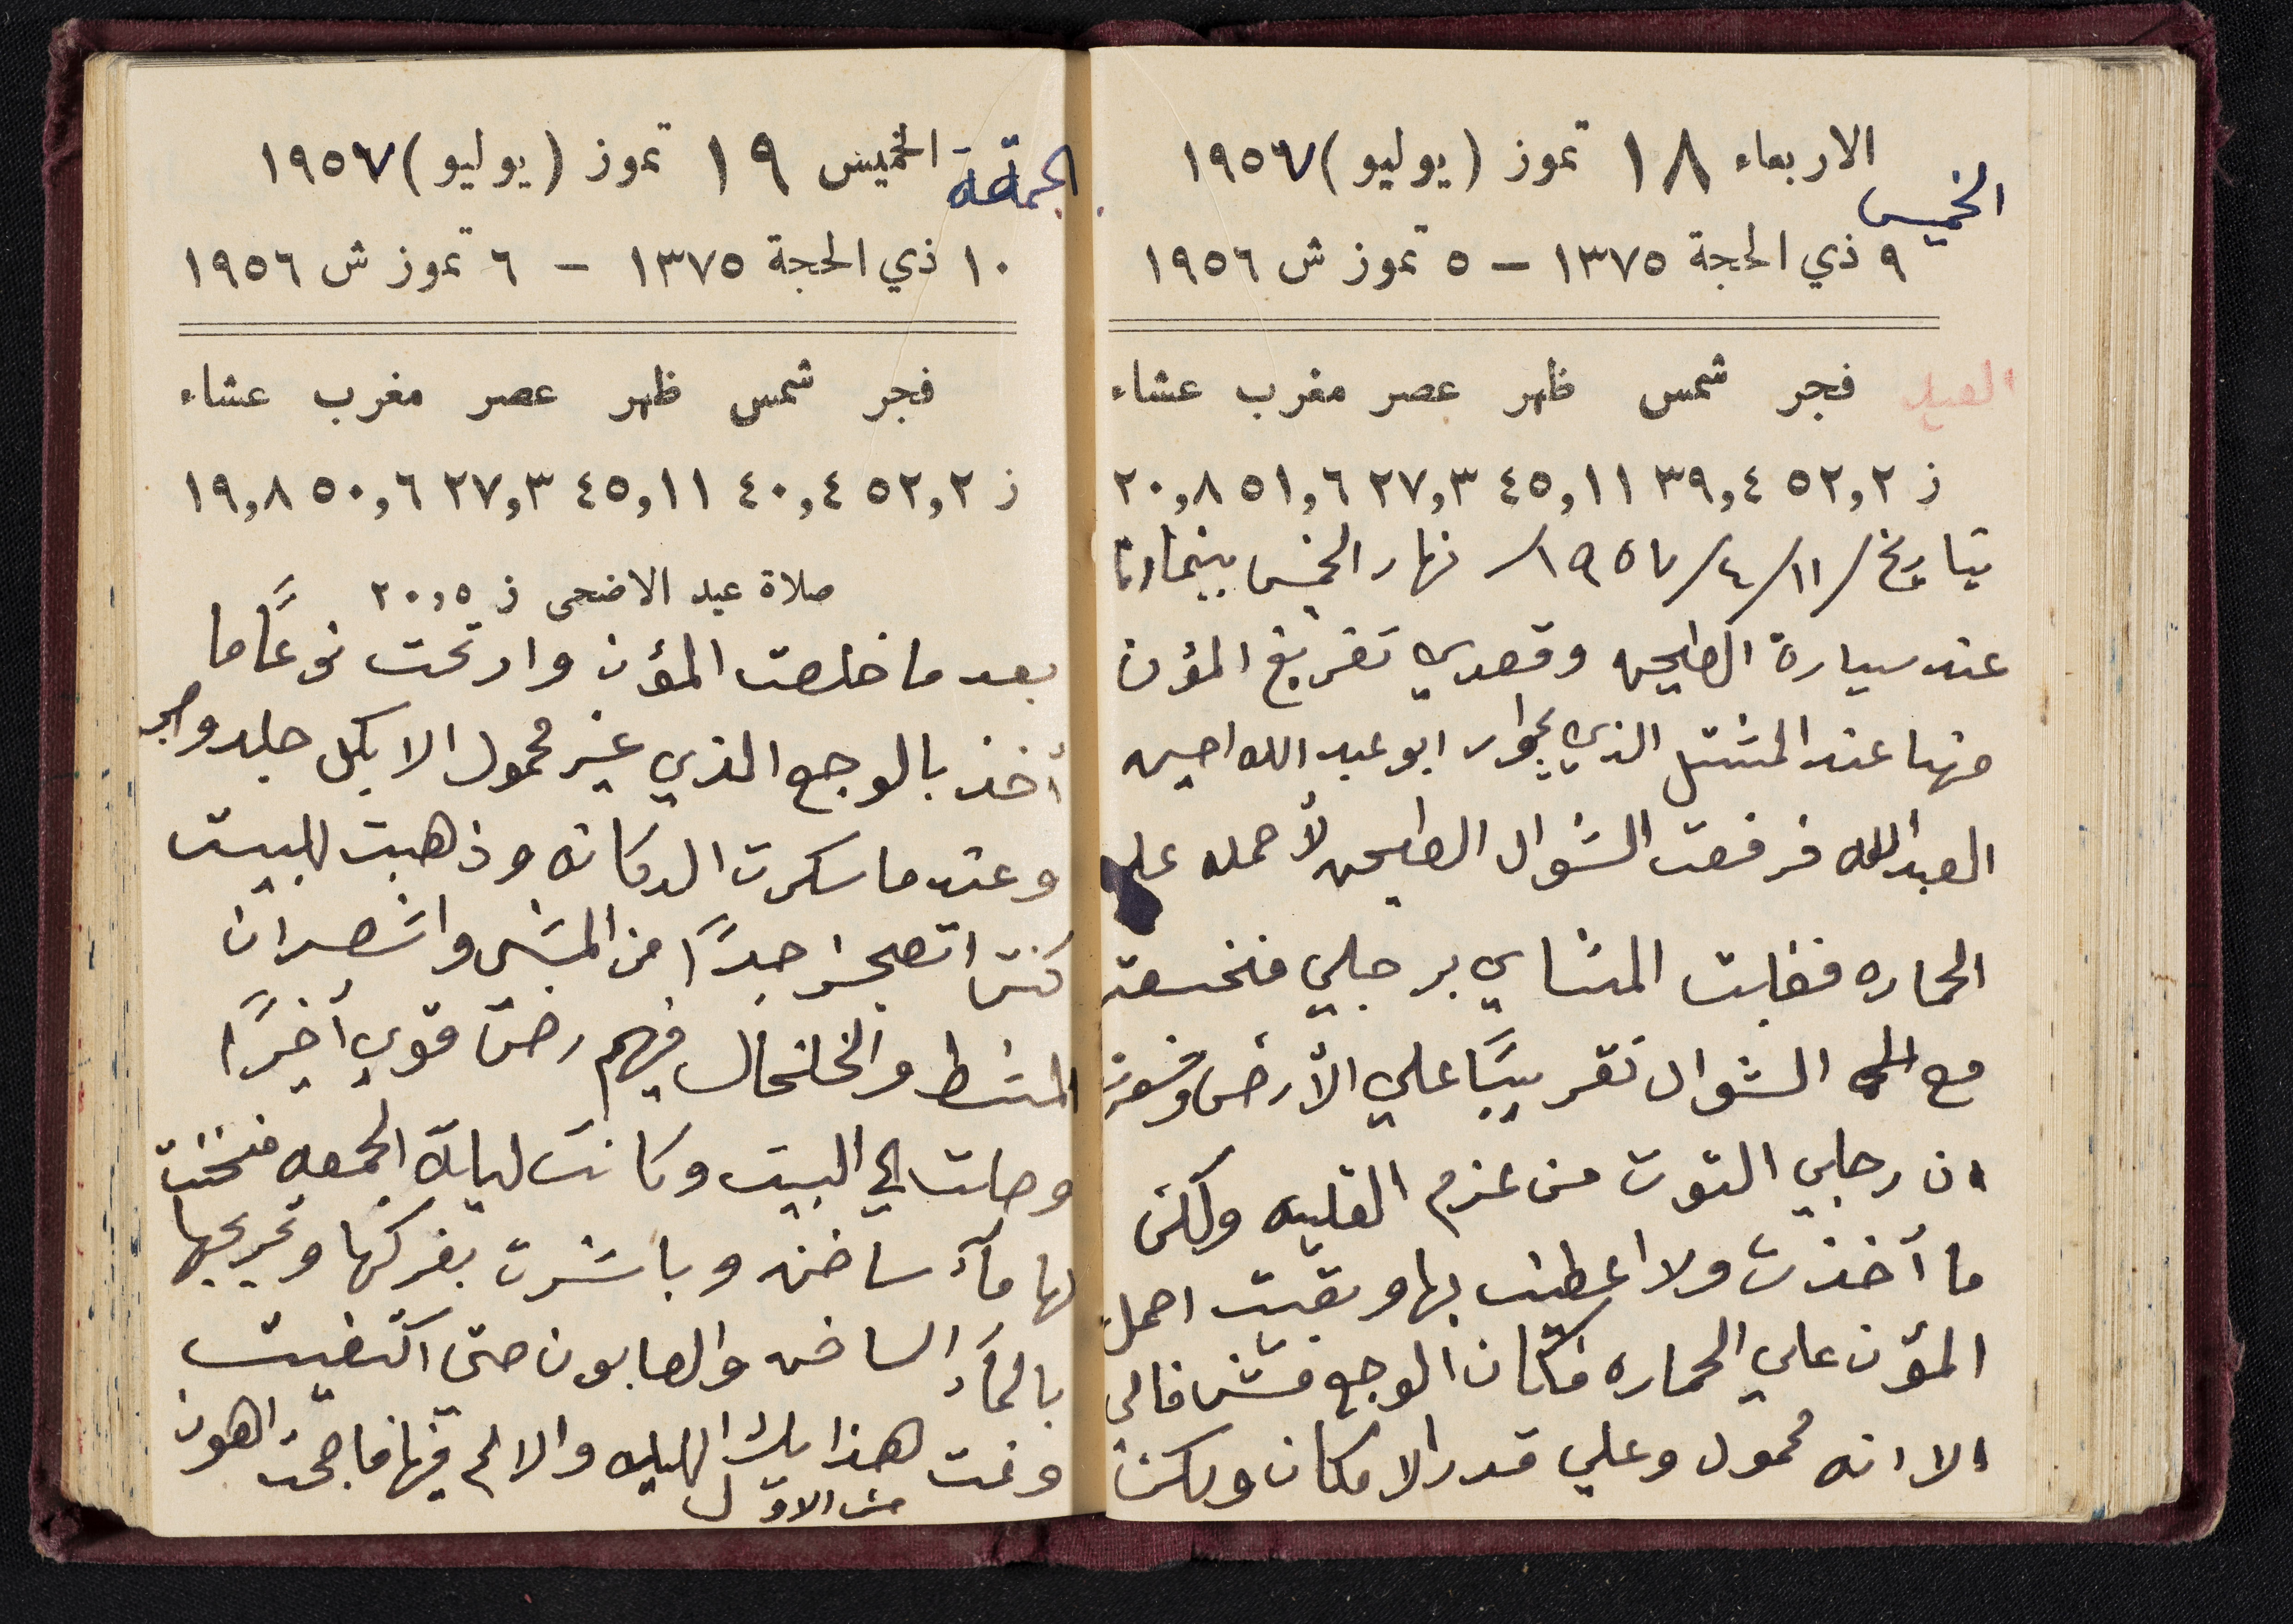 الاربعاء ١٨ تموز (يوليو) ١٩٥٧
الخميس
٩ ذي الحجة ١٣٧٥ – ٥ تموز ش ١٩٥٦
العيد فجر شمس ظهر عصر مغرب عشاء
ز ٥٢,٢ ٣٩,٤ ٤٥,١١ ٢٧,٣ ٥١,٦ ٢٠,٨
بتاريخ /١١/٤/١٩٥٧/ نهار الخميس بينما انا
عند سيارة الطحين وقصدي تفريغ المؤن
منها عند المشتل الذي بجوار ابو عبد الله احسين
العبدالله فرفعت الشوال الطحين لأحمله على
الحماره فقلبت المشاي برجلي فنخسفت
مع الشوال تقريبًا علي الأرض
ان رجلي التوت من عزم القلبه ولكن
ما أخذت ولا اعطيت بها وبقيت احمل
المؤن علي الحماره فكان الوجع مش خالي
الا انه محمول وعلي قدر الامكان ولكن
الجمعة الخميس ١٩ تموز (يوليو) ١٩٥٧
١٠ ذي الحجة ١٣٧٥ – ٦ تموز ش ١٩٥٦
فجر شمس ظهر عصر مغرب عشاء
ز ٥٢,٢ ٤٠,٤ ٤٥,١١ ٢٧,٣ ٥٠,٦ ١٩,٨
صلاة عيد الاضحى ز ٢٠,٥
بعد ما خلصت المؤن وارتحت نوعًا ما
أخذ بالوجع الذي غير محمول الا بكل جلد وصبر
وعندما سكرت الدكانه وذهبت للبيت
كنت اتعجز جدًا من المشي واشعر ان
المشط والخلخال فيهم رض قوي أخيرًا
وصلت الي البيت وكانت ليلة الجمعه فسخنت
لها مآء ساخن وباشرت بفركها وتمريجها
بالمآء الساخن والصابون حتى اكتفيت
ونمت هذيك الليله والالم فيها فاصبحت اهون
من الاول